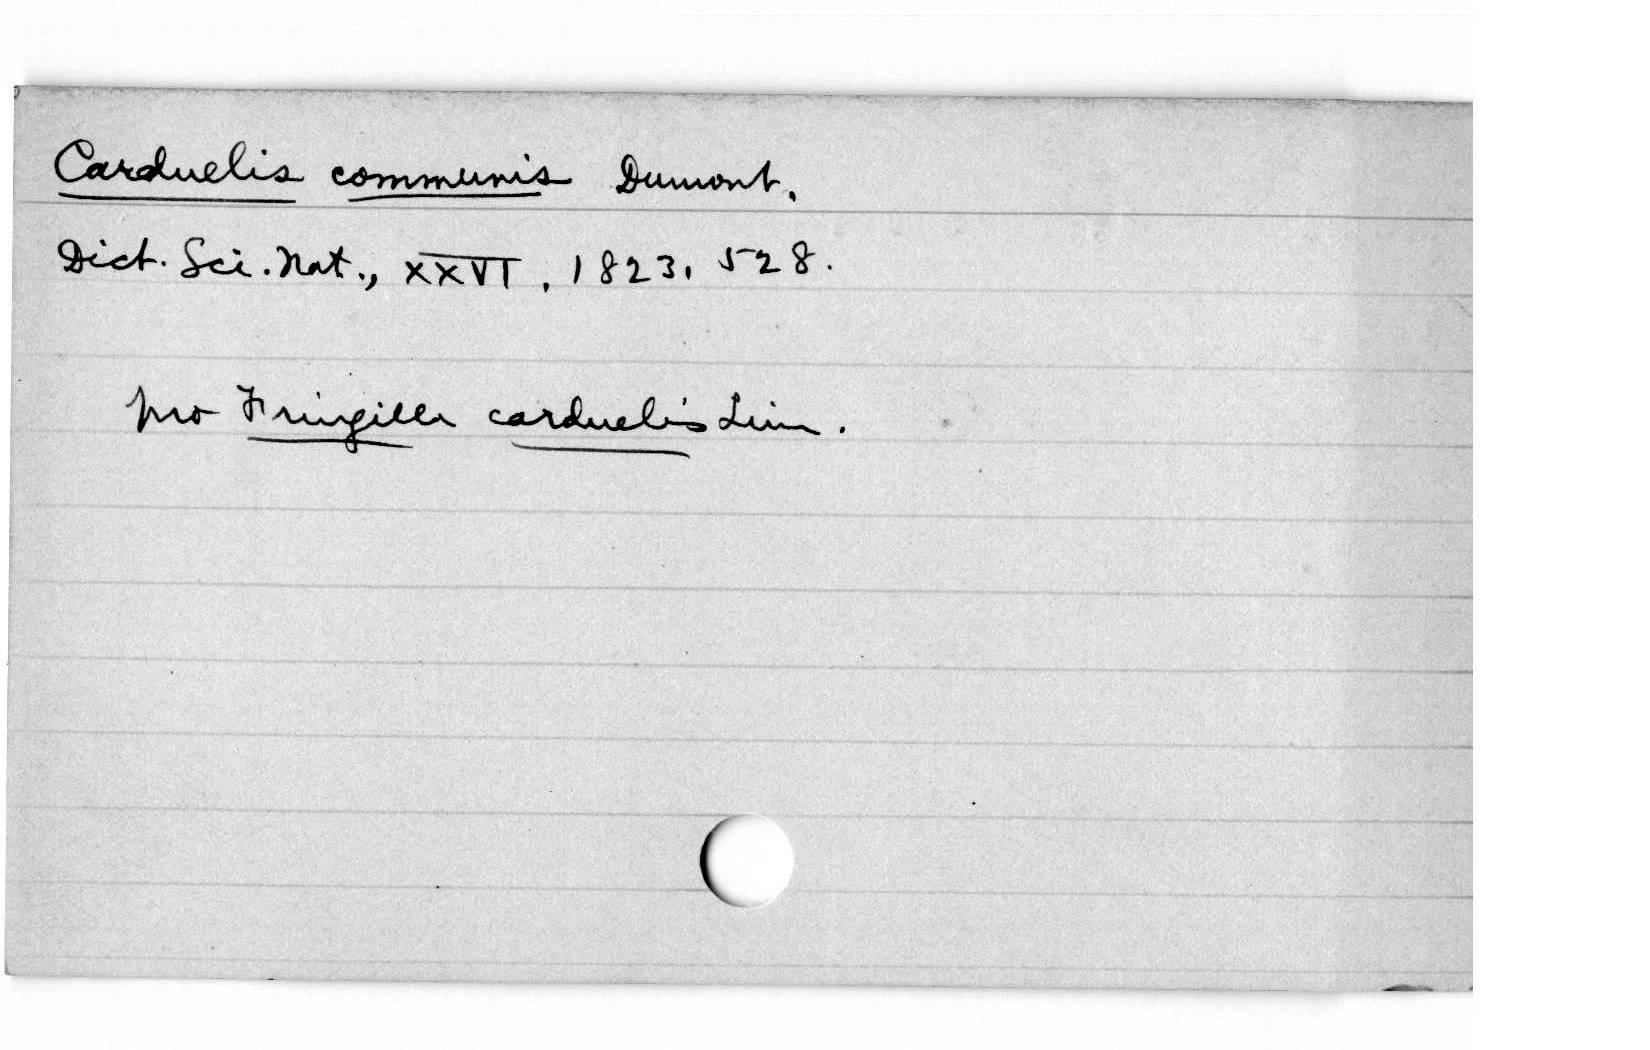 Carduelis communis Dumont.
Dict. Sci. Nat., XXVI, 1823, 528.
pro Fringilla carduelis Linn.